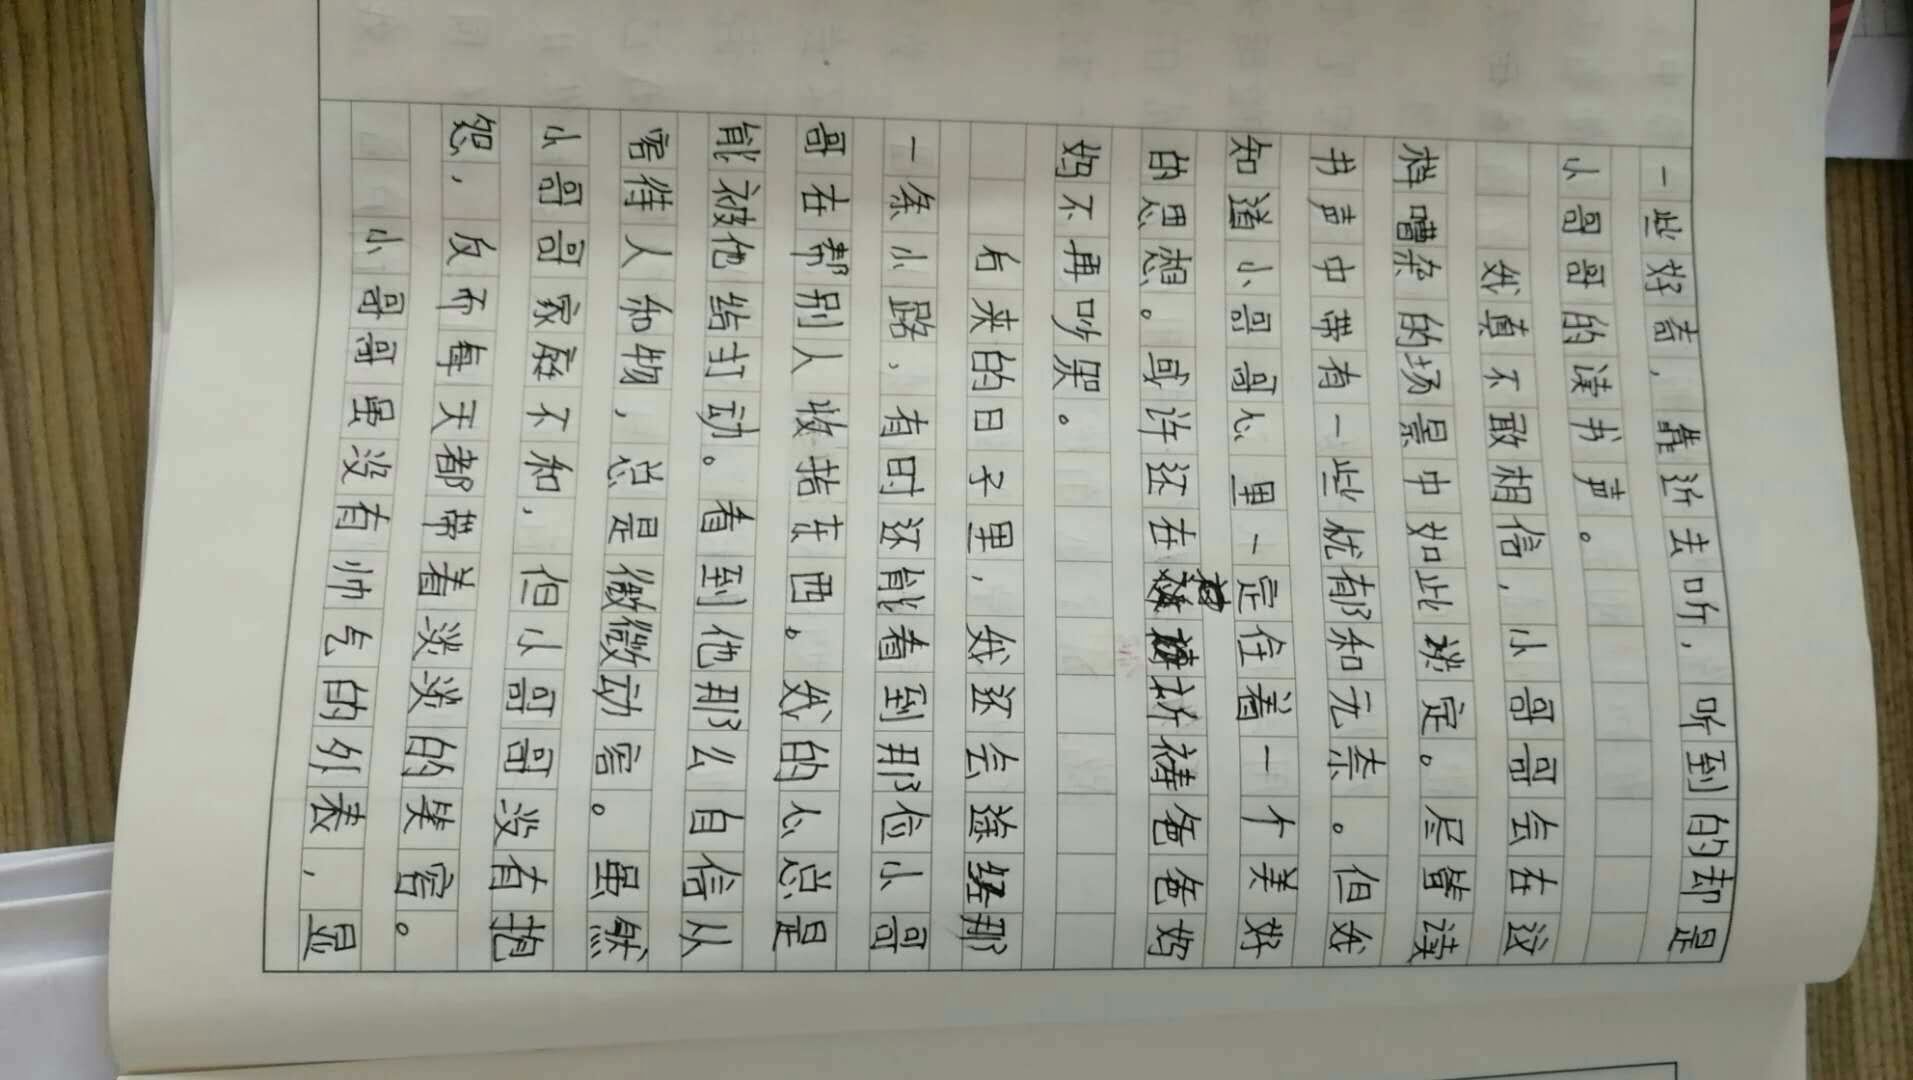 一些好奇，靠近去听，听到的却是
小哥哥的读书声。
我真不敢相信，小哥哥会在这
样嘈杂的场景中如此淡定。尽皆读
书声中带有一些忧郁和无奈。但我
知道小哥哥心里一定住着一个美好
的思想。或许还在祈祷爸爸妈
妈不再吵架。
右来的日子里，我还会途经那
一条小路，有时还能看到那位小哥
哥在帮别人收拮东西。我的心总是
能被他给打动。看到他那么自信从
容待人和物，总是微微动容。虽然
小哥哥家庭不和，但小哥哥没有抱
怨，反而每天都带着淡淡的笑容。
小哥哥虽没有帅气的外表，显